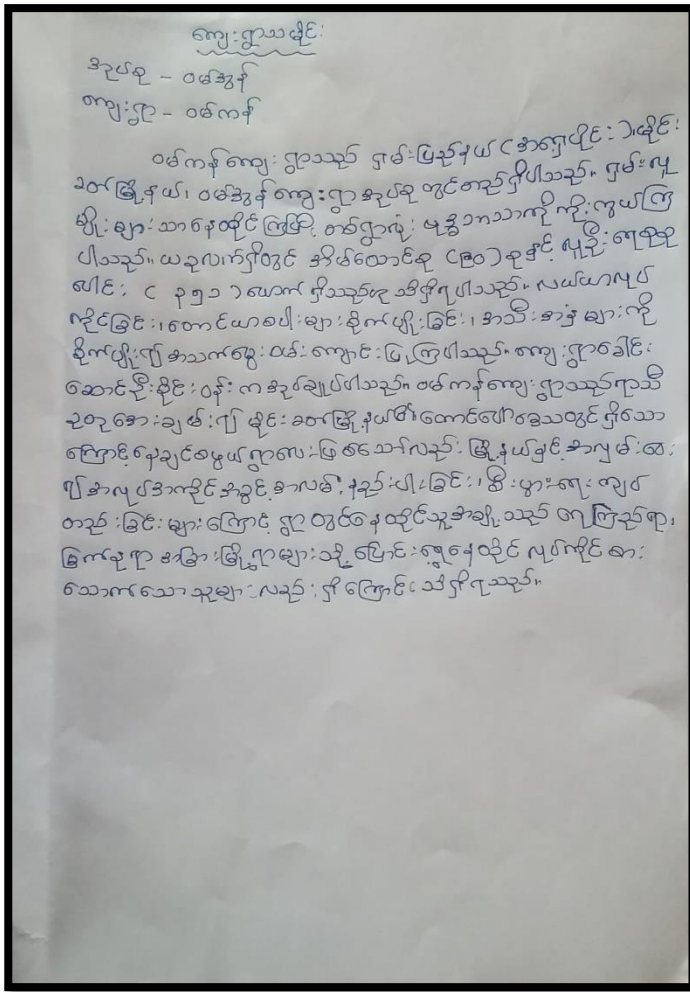 ကျေးရွာသမိုင်း
အုပ်စု - ဝမ်အွန်
ကျေးရွာ - ဝမ်ကန်
ဝမ်ကန်ကျေးရွာသည် ရှမ်းပြည်နယ် (အရှေ့ပိုင်း)၊ မိုင်း
ခတ်မြို့နယ်၊ ဝမ်အွန်ကျေးရွာအုပ်စုတွင်တည်ရှိပါသည်။ ရှမ်းလူ
မျိုးများသာနေထိုင်ကြပြီး တစ်ရွာလုံး ဗုဒ္ဓဘာသာကိုကိုးကွယ်ကြ
ပါသည်။ ယခုလက်ရှိတွင် အိမ်ထောင်စု (၆၀) စုနှင့် လူဦးရေစုစု
ပေါင်း ( ၃၅၁ ) ယောက်ရှိသည်ဟုသိရှိရပါသည်။ လယ်ယာလုပ်
ကိုင်ခြင်း၊ တောင်ယာစပါးများစိုက်ပျိုးခြင်း၊ အသီးအနှံများကို
စိုက်ပျိုး၍ အသက်မွေးဝမ်းကျောင်းပြုကြပါသည်။ ကျေးရွာခေါင်း
ဆောင်ဦးစိုင်းဝန်းကအုပ်ချုပ်ပါသည်။ ဝမ်ကန်ကျေးရွာသည်ရာသီ
ဥတုအေးချမ်း၍ မိုင်းခတ်မြို့နယ် တောင်ပေါ်ဒေသတွင်ရှိသော
ကြောင့်နေချင်စဖွယ်ရွာလေးဖြစ်သော်လည်း မြို့နယ်နှင့်အလှမ်းဝေး
၍ အလုပ်အကိုင်အခွင့်အလမ်းနည်းပါးခြင်း၊ စီးပွားရေးကျပ်
တည်းခြင်းများကြောင့် ရွာတွင်နေထိုင်သူအချို့သည် ရေကြည်ရာ၊
မြက်နုရာ အခြားမြို့ရွာများသို့ ပြောင်းရွှေ့နေထိုင်လုပ်ကိုင်စား
သောက်သောသူများလည်းရှိကြောင်းသိရှိရသည်။